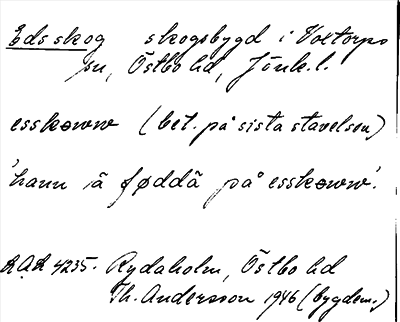 Edsskog skogsbygd i Voxtorps
sn, Östbo hd, Jönk.l.
esskoww (bet. på sista stavelsen)
'hann iä føddä på esskoww'.
R.A.R 4235. Rydaholm, Östbo hd
Th. Andersson 1946 (bygdem.)